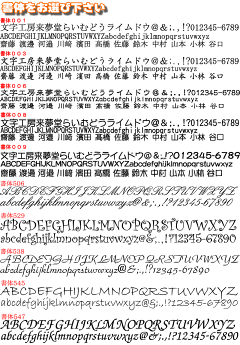 書体をお選び下さい
書体００１
文字工房来夢堂らいむどうライムドウ＠＆；．，！？０12345-6789
ABCDEFGHIJKLMNOPQRSTUVWXYZabcdefghijklmnopqrstuvwxyz
齋藤 渡邉 河邊 川﨑 濱田 髙橋 佐藤 鈴木 中村 山本 小林 谷口
書体００３
文字工房来夢堂らいむどうライムドウ＠＆；．，！？012345-6789
ABCDEFGHIJKLMNOPQRSTUVWXYZabcdefghijklmnopqrstuvwxyz
齋藤 渡邉 河邊 川﨑 濱田 髙橋 佐藤 鈴木 中村 山本 小林 谷口
書体００６
文字工房来夢堂らいむどうライムドウ＠＆；．，！？012345-6789
ABCDEFGHIJKLMNOPQRSTUVWXYZabcdefghijklmnopqrstuvwxyz
齋藤 渡邉 河邊 川﨑 濱田 髙橋 佐藤 鈴木 中村 山本 小林 谷口
書体００８
文字工房来夢堂らいむどうライムドウ＠＆；．，！？012345-6789
ABCDEFGHIJKLMNOPQRSTUVWXYZabcdefghijklmnopqrstuvwxyz
齋藤 渡邉 河邊 川﨑 濱田 髙橋 佐藤 鈴木 中村 山本 小林 谷口
書体００９
文字工房来夢堂らいむどうライムドウ@&;.,!?012345-6789
ABCDEFGHIJKLMNOPQRSTUVWXYZabcdefghijklmnopqrstuvwxyz
齋藤 渡邉 河邊 川﨑 濱田 髙橋 佐藤 鈴木 中村 山本 小林 谷口
書体506
ABCDEFGHIJKLMNOPQRSTUVWXYZ
abcdefghijklmnopqrstuvwxyz@&;.,!?012345-67890
書体529
ABCDEFGHIJKLMNOPQRSTUVWXYZ
abcdefghijklmnopqrstuvwxyz@&;.,!?12345-67890
書体538
ABCDEFGHIJKLMNOPQRSTUVWXYZ
abcdefghijklmnopqrstuvwxyz@&;.,!?12345-67890
書体545
ABCDEFGHIJKLMNOPQRSTUVWXYZ
abcdefghijklmnopqrstuvwxyz@&;.,!?12345-67890
書体547
ABCDEFGHIJKLMNOPQRSTUVWXYZ
abcdefghijklmnopqrstuvwxyz@&;.,!?12345-67890